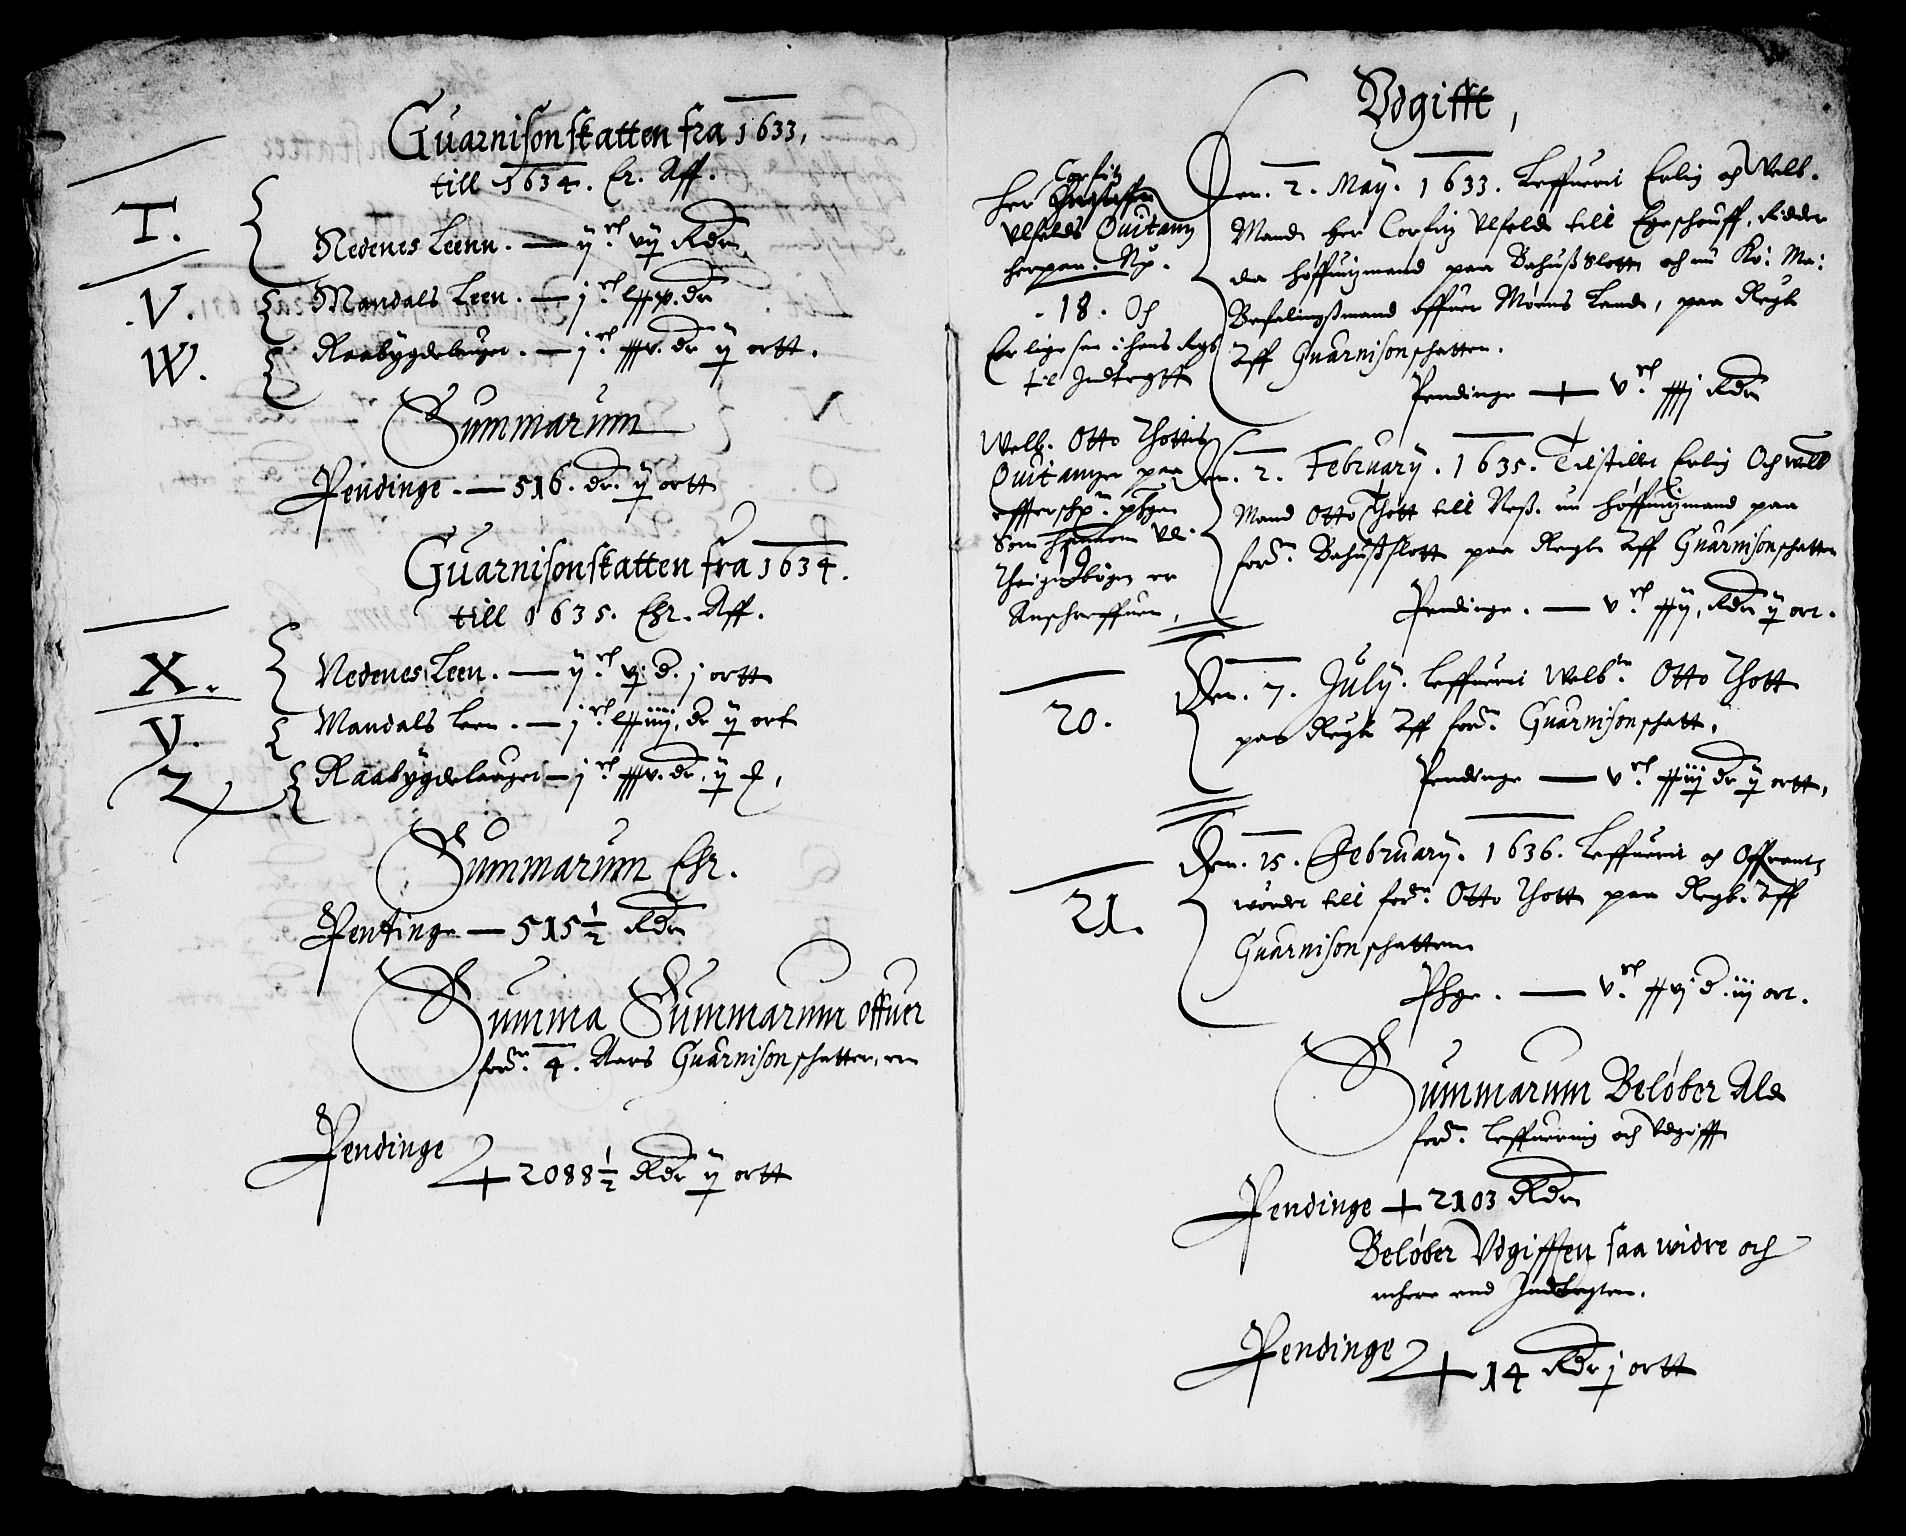 Guarnisonskatten fra 1633,
till 1634. Er. Aff.
T.
Nedenes Leenn. — ij c. vij Rdr.
V.
Mandals Leen. — j c.
W.
Raabÿgdelauget. — j c. xxxv. dr ij ortt.
Summarum
Pendinge. — 516. dr. ij ortt
Guarnisonskatten fra 1634.
till 1635. Ehr. Aff.
X.
Nedenes Leen. — ij c. vj d. j ortt
Y.
Mandals Leen. — j c. lxxiiij, dr ij ort
Z
Raabÿgdelauget — j c. xxxv. dr. ij
Summarum Ehr.
Pentinge — 515 1/2 Rdr
Summa Summarum offuer
forn. 4. Aars Guarnisonschatter, er
Pendinge
2088 1/2 Rdr ij ortt
Vdgifft,
Her Corfitz
Ulfelds Quitantz
herpaa. No.
18. Och
Den. 2. Maÿ. 1633. Leffuerit Erlig och Welb.
Mand her Corfitz Ulfeld till Egeschouff, Ridder
da höffuitzmand paa Bahuß Slott och nu Ko: Ma:
Befalingßmand offuer Møens Land, paa Regb
Aff Guarnisonschatten.
Pendinge — v c. xxxj Rdr
Welb. Otto Thottis
Quitantzer paa
som
er
Anschreffuen,
Den. 2. Februarÿ. 1635. Tilstillt Erlig Och Welb
Mand Otto Thott till Neß. nu höffuitzmand paa
forn. Bahußslott paa Regb Aff Guarnisonschatten
Pendinge. — v c. xxij, Rdr ij ort.
20.
Den. 7. Julÿ. Leffuerit Welb. Otto Thott
paa Regb Aff forn. Guarnisonschatt,
Pendinge — v c. xxiij dr ij ortt,
21.
Den. 15. Februarÿ. 1636. Leffuerit och Offrantz
wordet till forn. Otto Thott paa Regb. Aff
Guarnisonschatten
Phge. — v c. xxvj d. iij ort.
Summarum Beløber Ald
forn. Leffuering och Vdgifft
Pendinge 2103 Rdr
Beløber Vdgifften saa widre och
mhere end Indtegten.
Pendinge
14 Rdr j ortt